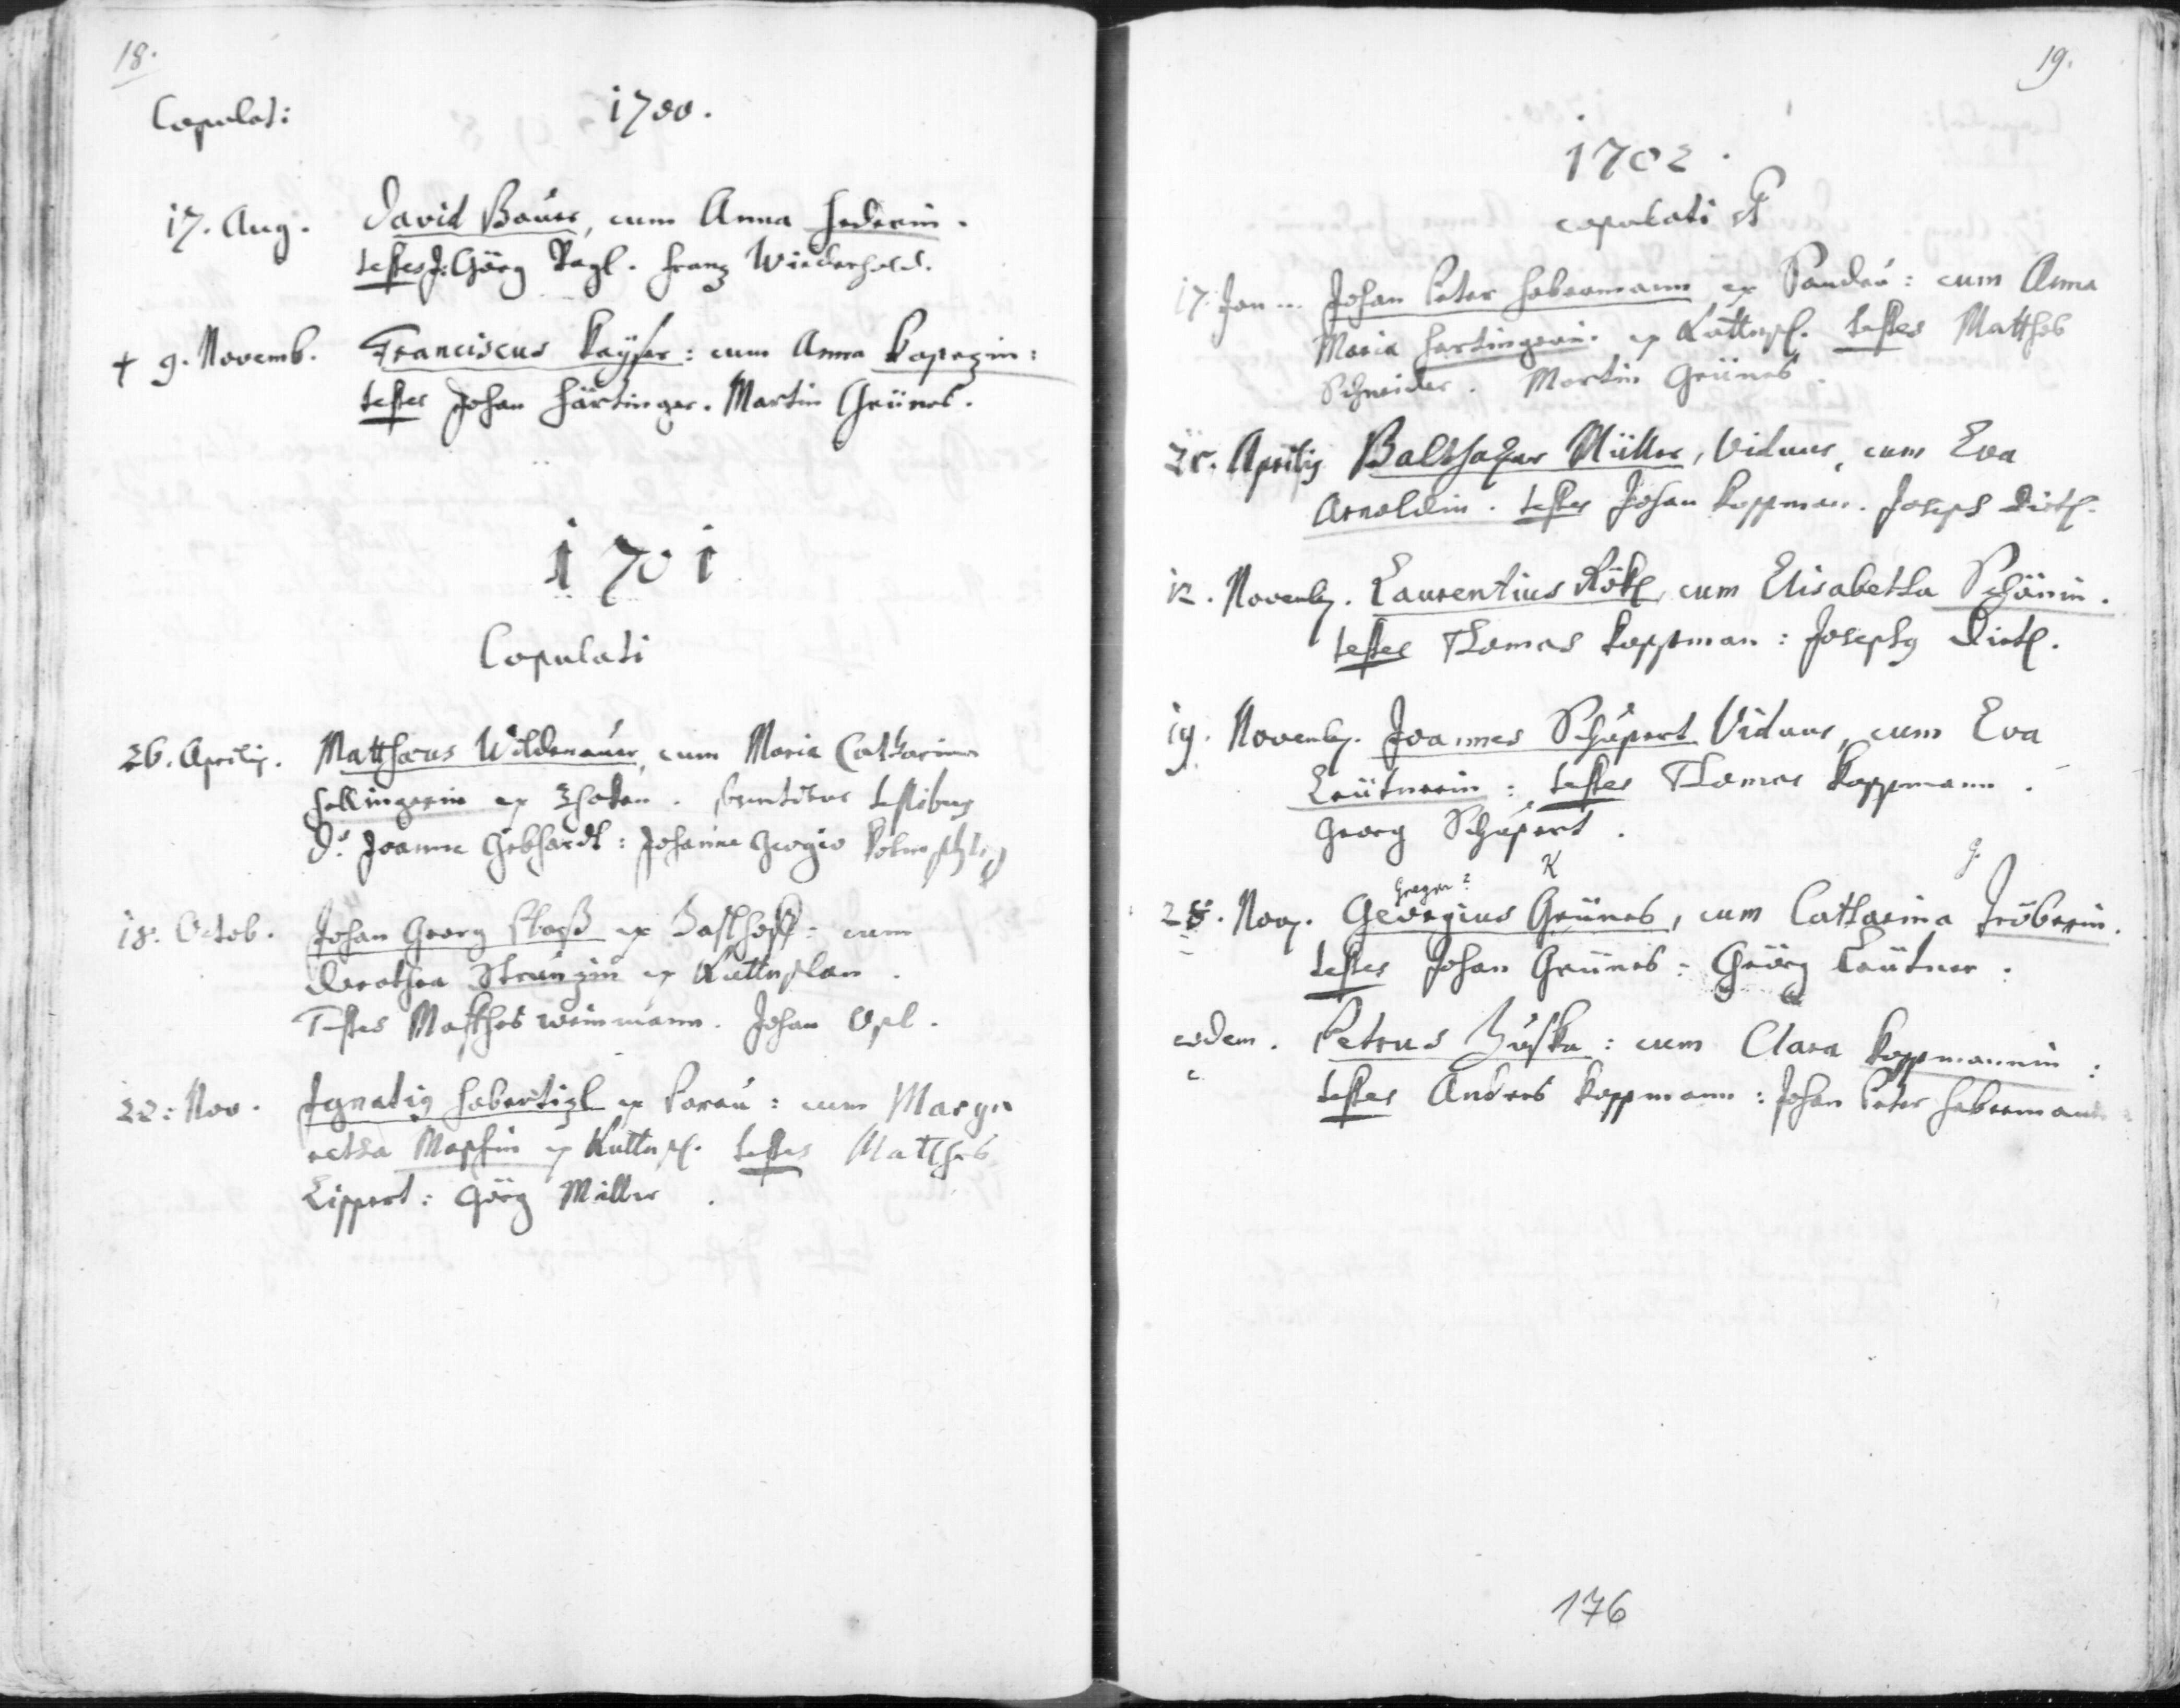 18.
Copulati 1700.
17. Aug. David Bauer, cum Anna Hederin.
testes J: Görg Vogl. Frantz Wiederhold.
+ 9. Novemb. Franciscus Kayser: cum Anna
testes Johan Härtinger. Martin Grünes.
1701
Copulati
26. Aprilis. Matthæus Wildenauer, cum Maria Catharina
Hellingerin ex testibus
D: Joanne Gebhardt: Johanne Georgio
18. Octob. Johan Georg ex : cum
Dorothea Strunzin ex Kuttnplan.
Testes Matthes Weinmann. Johan Opl.
22: Nov. Ignatius Habertizl ex : cum Marga
retha ex Kuttnpl. testes Matthes
Lippert: Görg Miller.
19.
1702.
copulati
17. Jan ... Johan Peter Habermann ex Sandau: cum Anna
Maria Hartingerin. ex Kuttnpl. testes Matthes
Schneider. Martin Grünes.
25. Aprilis Balthasar Müller, Viduus, cum Eva
Arnoldin. testes Johan Koppman. Joseph Dietl.
12. Novemb. Laurentius Kökl, cum Elisabetha Schönin.
testes Thomas Koppman: Josephus Dietl.
19. Novemb. Joannes Schupert Viduus, cum Eva
Leütnerin: testes Thomas Koppmann.
Georg Schupert.
K g.
Gregor?
28. Nov. Georgius Grünes, cum Catharina Tröberin.
testes Johan Grünes: Görg Leütner.
eodem. Petrus Huska: cum Clara Koppmannin:
testes Andres Koppmann: Johan Peter Habermann
176